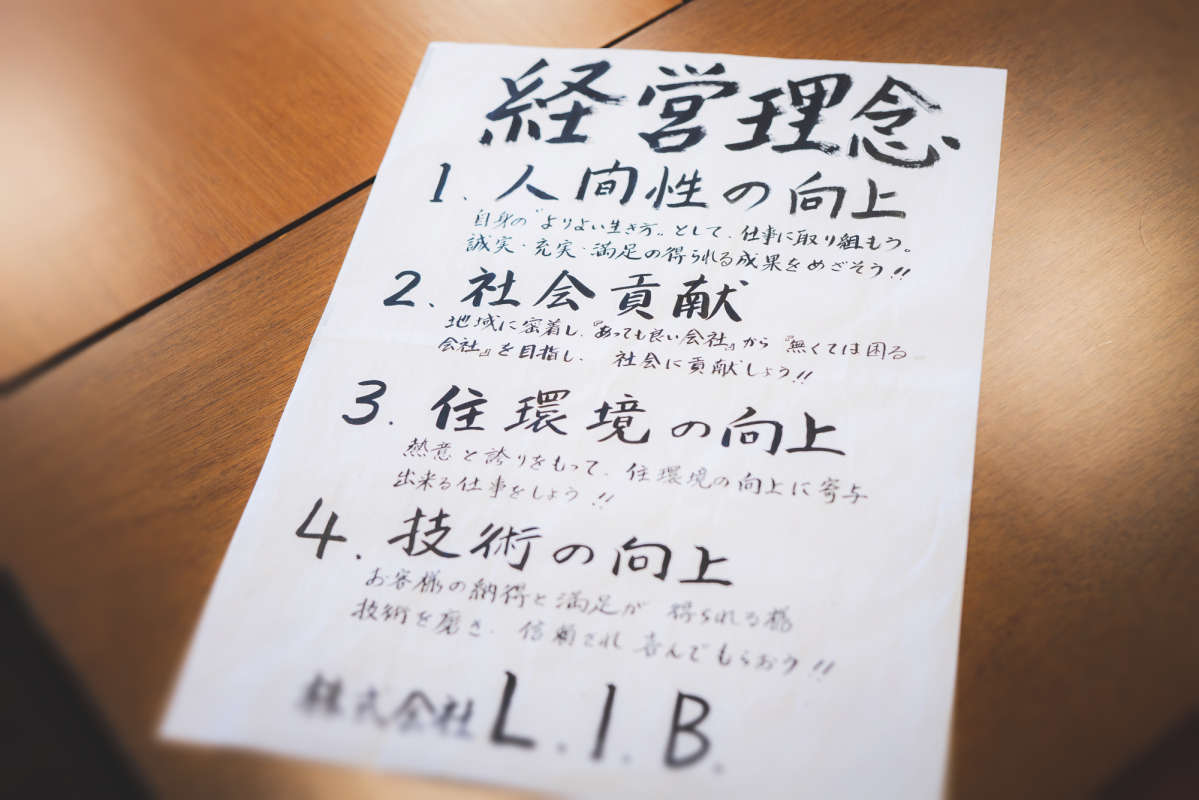 経営理念
1. 人間性の向上
自身の〝よりよい生き方〟として、仕事に取り組もう。
誠実・充実・満足の得られる成果をめざそう!!
2. 社会貢献
地域に密着し、『あっても良い会社』から『無くては困る
会社』を目指し、 社会に貢献しましょう!!
3. 住環境の向上
熱意と誇りをもって、住環境の向上に寄与
出来る仕事をしよう!!
4. 技術の向上
お客様の納得と満足が 得られる様
技術を磨き、信頼され 喜んでもらおう!!
株式会社 L.I.B.